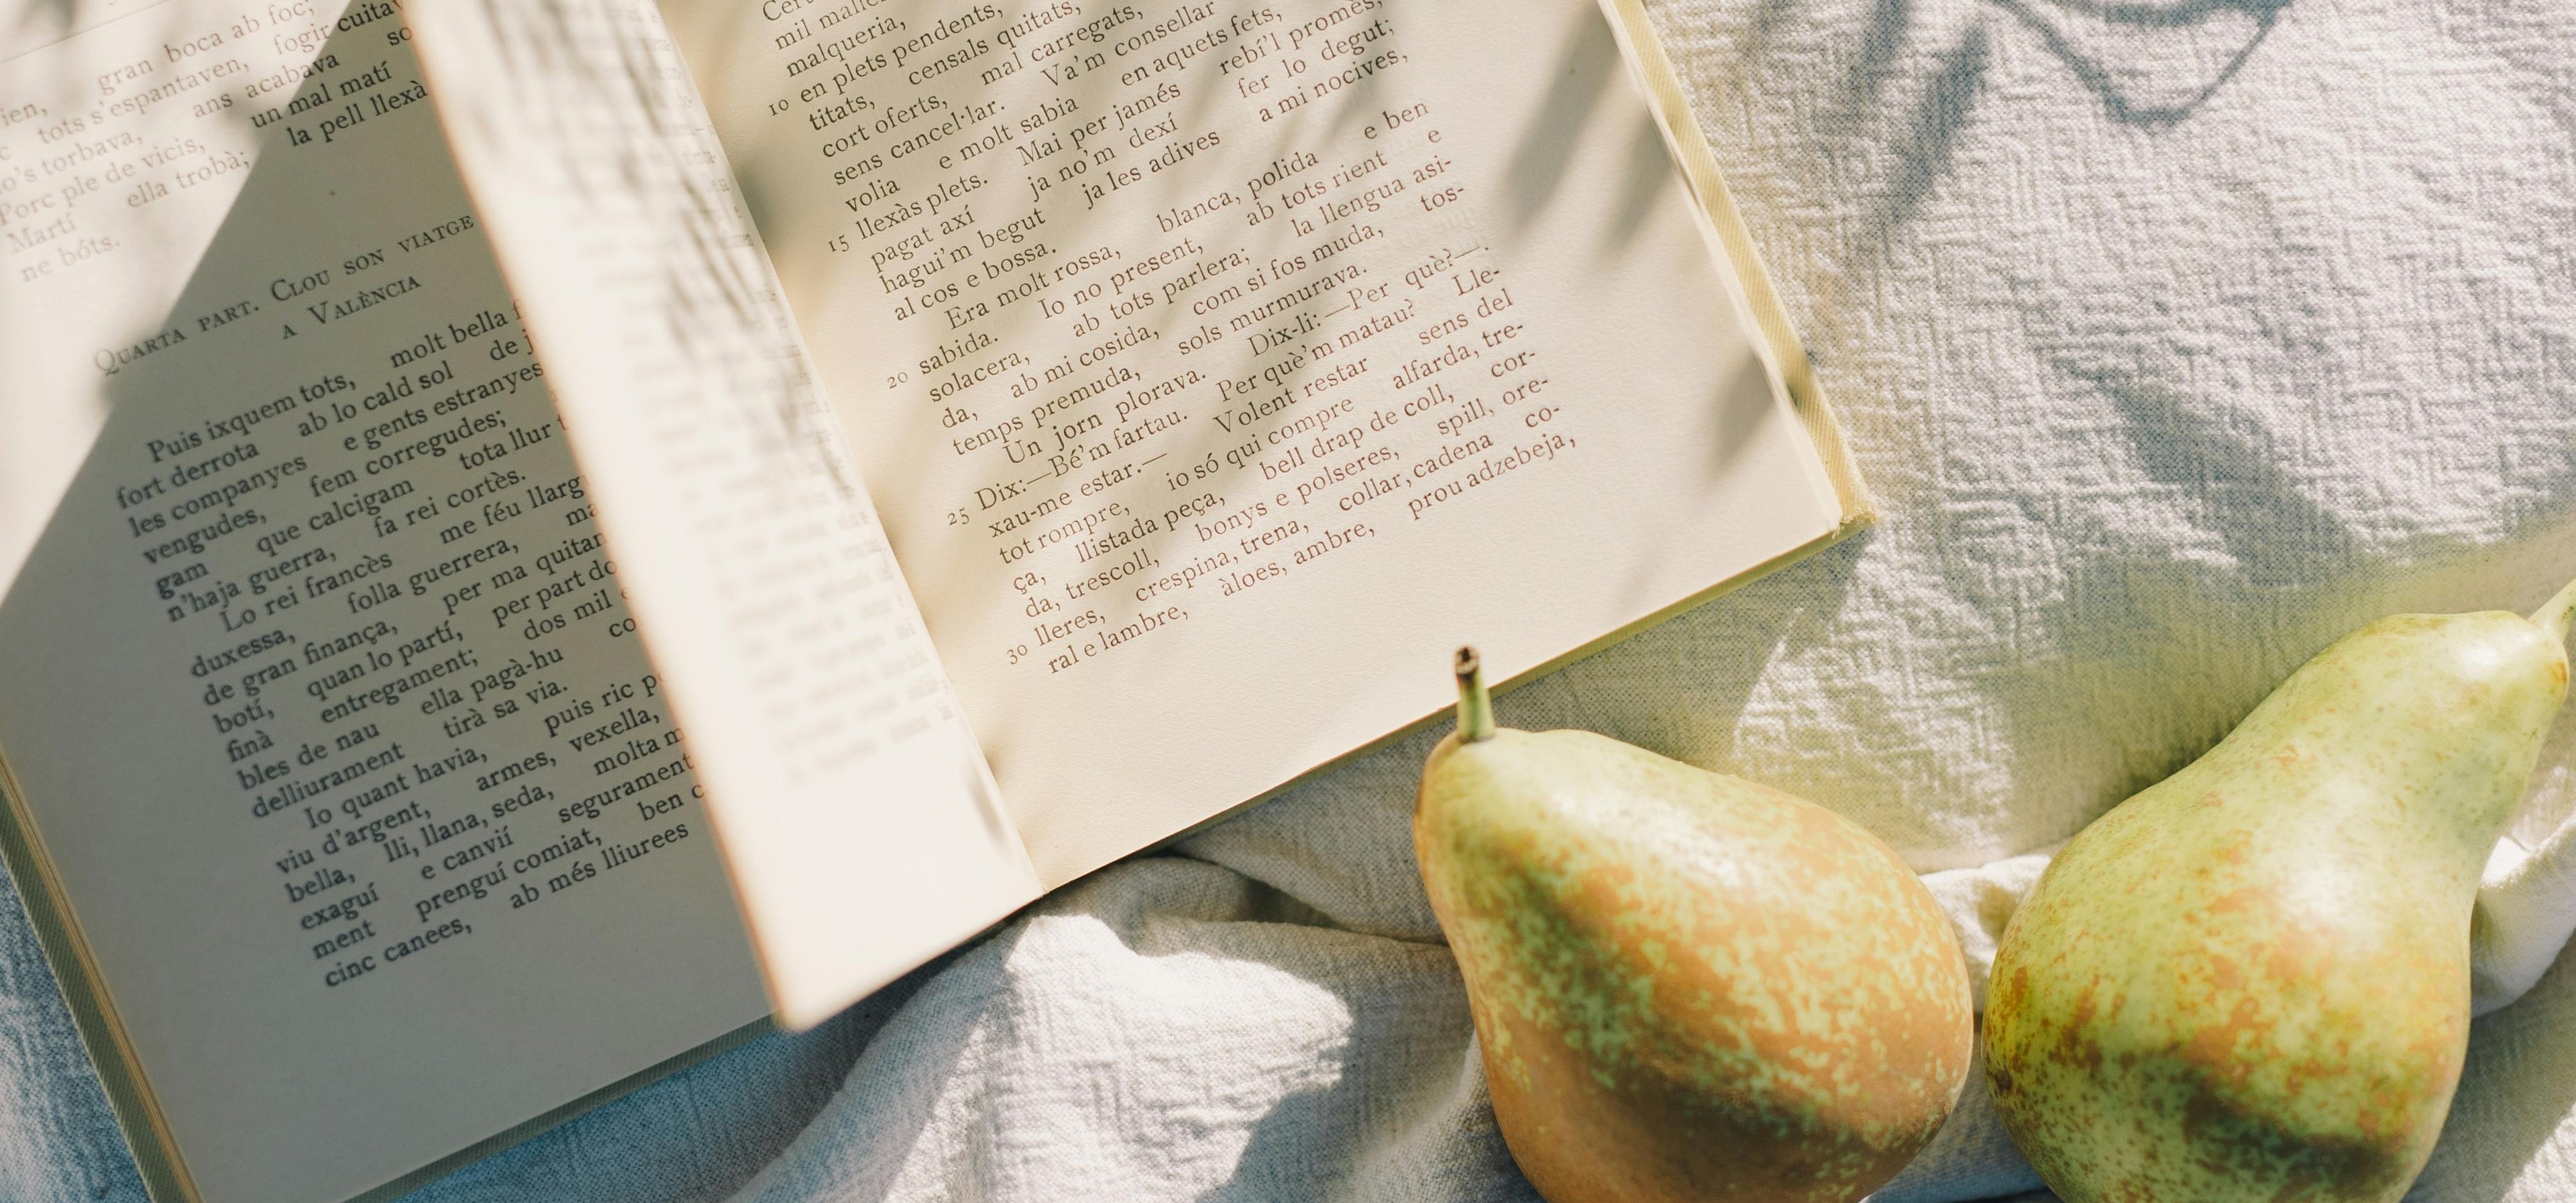 ien, gran boca ab foc;
tots s'espantaven, fogir cuitav
o's torbava, ans acabava so
Porc ple de vicis, un mal matí
Martí ella trobà; la pell llexà
ne bóts.
QUARTA PART. CLOU SON VIATGE
A VALÈNCIA
Puis ixquem tots, molt bella f
fort derrota ab lo cald sol de j
les companyes e gents estranyes
vengudes, fem corregudes;
gam que calcigam tota llur t
n'haja guerra, fa rei cortès.
Lo rei francès me féu llarg
duxessa, folla guerrera, ma
de gran finança, per ma quitan
botí, quan lo partí, per part do
finà entregament; dos mil
bles de nau ella pagà-hu co
delliurament tirà sa via.
Io quant havia, puis ric p
viu d'argent, armes, vexella,
bella, lli, llana, seda, molta m
exaguí e canvií segurament
ment prenguí comiat, ben c
cinc canees, ab més lliurees
mil malle
malqueria,
10 en plets pendents,
titats, censals quitats,
cort oferts, mal carregats,
sens cancel·lar. Va'm consellar
volia e molt sabia en aquets fets,
llexàs plets. Mai per jamés rebí'l promès,
15 pagat axí ja no'm dexí fer lo degut;
hagui'm begut ja les adives a mi nocives,
al cos e bossa.
Era molt rossa, blanca, polida e ben
sabida. Io no present, ab tots rient e
20 solacera, ab tots parlera; la llengua asi-
da, ab mi cosida, com si fos muda, tos-
temps premuda, sols murmurava.
Un jorn plorava. Dix-li:—Per què?—.
Dix:—Bé'm fartau. Per què'm matau? Lle-
25 xau-me estar.— Volent restar sens del
tot rompre, io só qui compre alfarda, tre-
ça, llistada peça, bell drap de coll, cor-
da, trescoll, bonys e polseres, spill, ore-
lleres, crespina, trena, collar, cadena co-
30 ral e lambre, àloes, ambre, prou adzebeja,